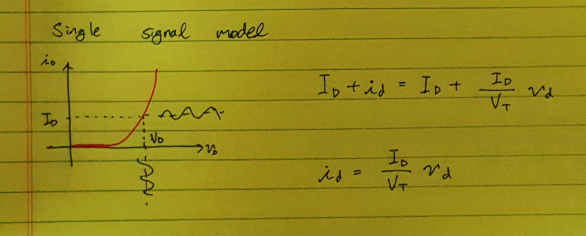 Single signal model
i_D
I_D + i_d = I_D + I_D/V_T v_d
I_D
V_D
v_D
i_d = I_D/V_T v_d